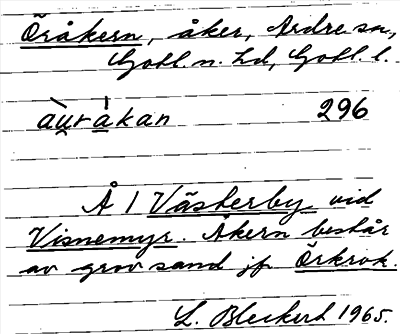 Öråkern, åker, Ardre sn,
Gotl. n. hd, Gotl. l.
àu̯rákan 296
Å 1 Västerby vid
Visnemyr. Åkern består
av grov sand jf. Örkrok.
L. Bleckert 1965.